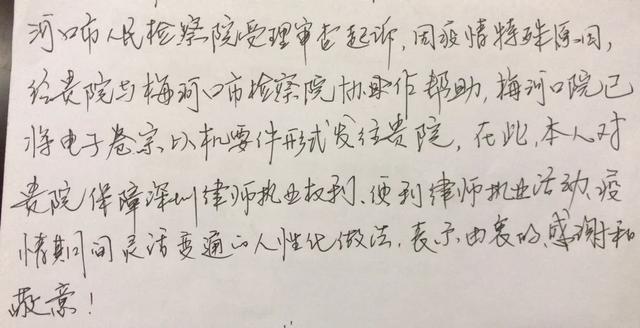 河口市人民检察院受理审查起诉,因疫情特殊原因,
经贵院与梅河口市检察院协助作帮助,梅河口院已
将电子卷宗以机要件形式发往贵院,在此,本人对
贵院保障深圳律师执业权利、便利律师执业活动、疫
情期间灵活变通的人性化做法,表示由衷的感谢和
敬意!